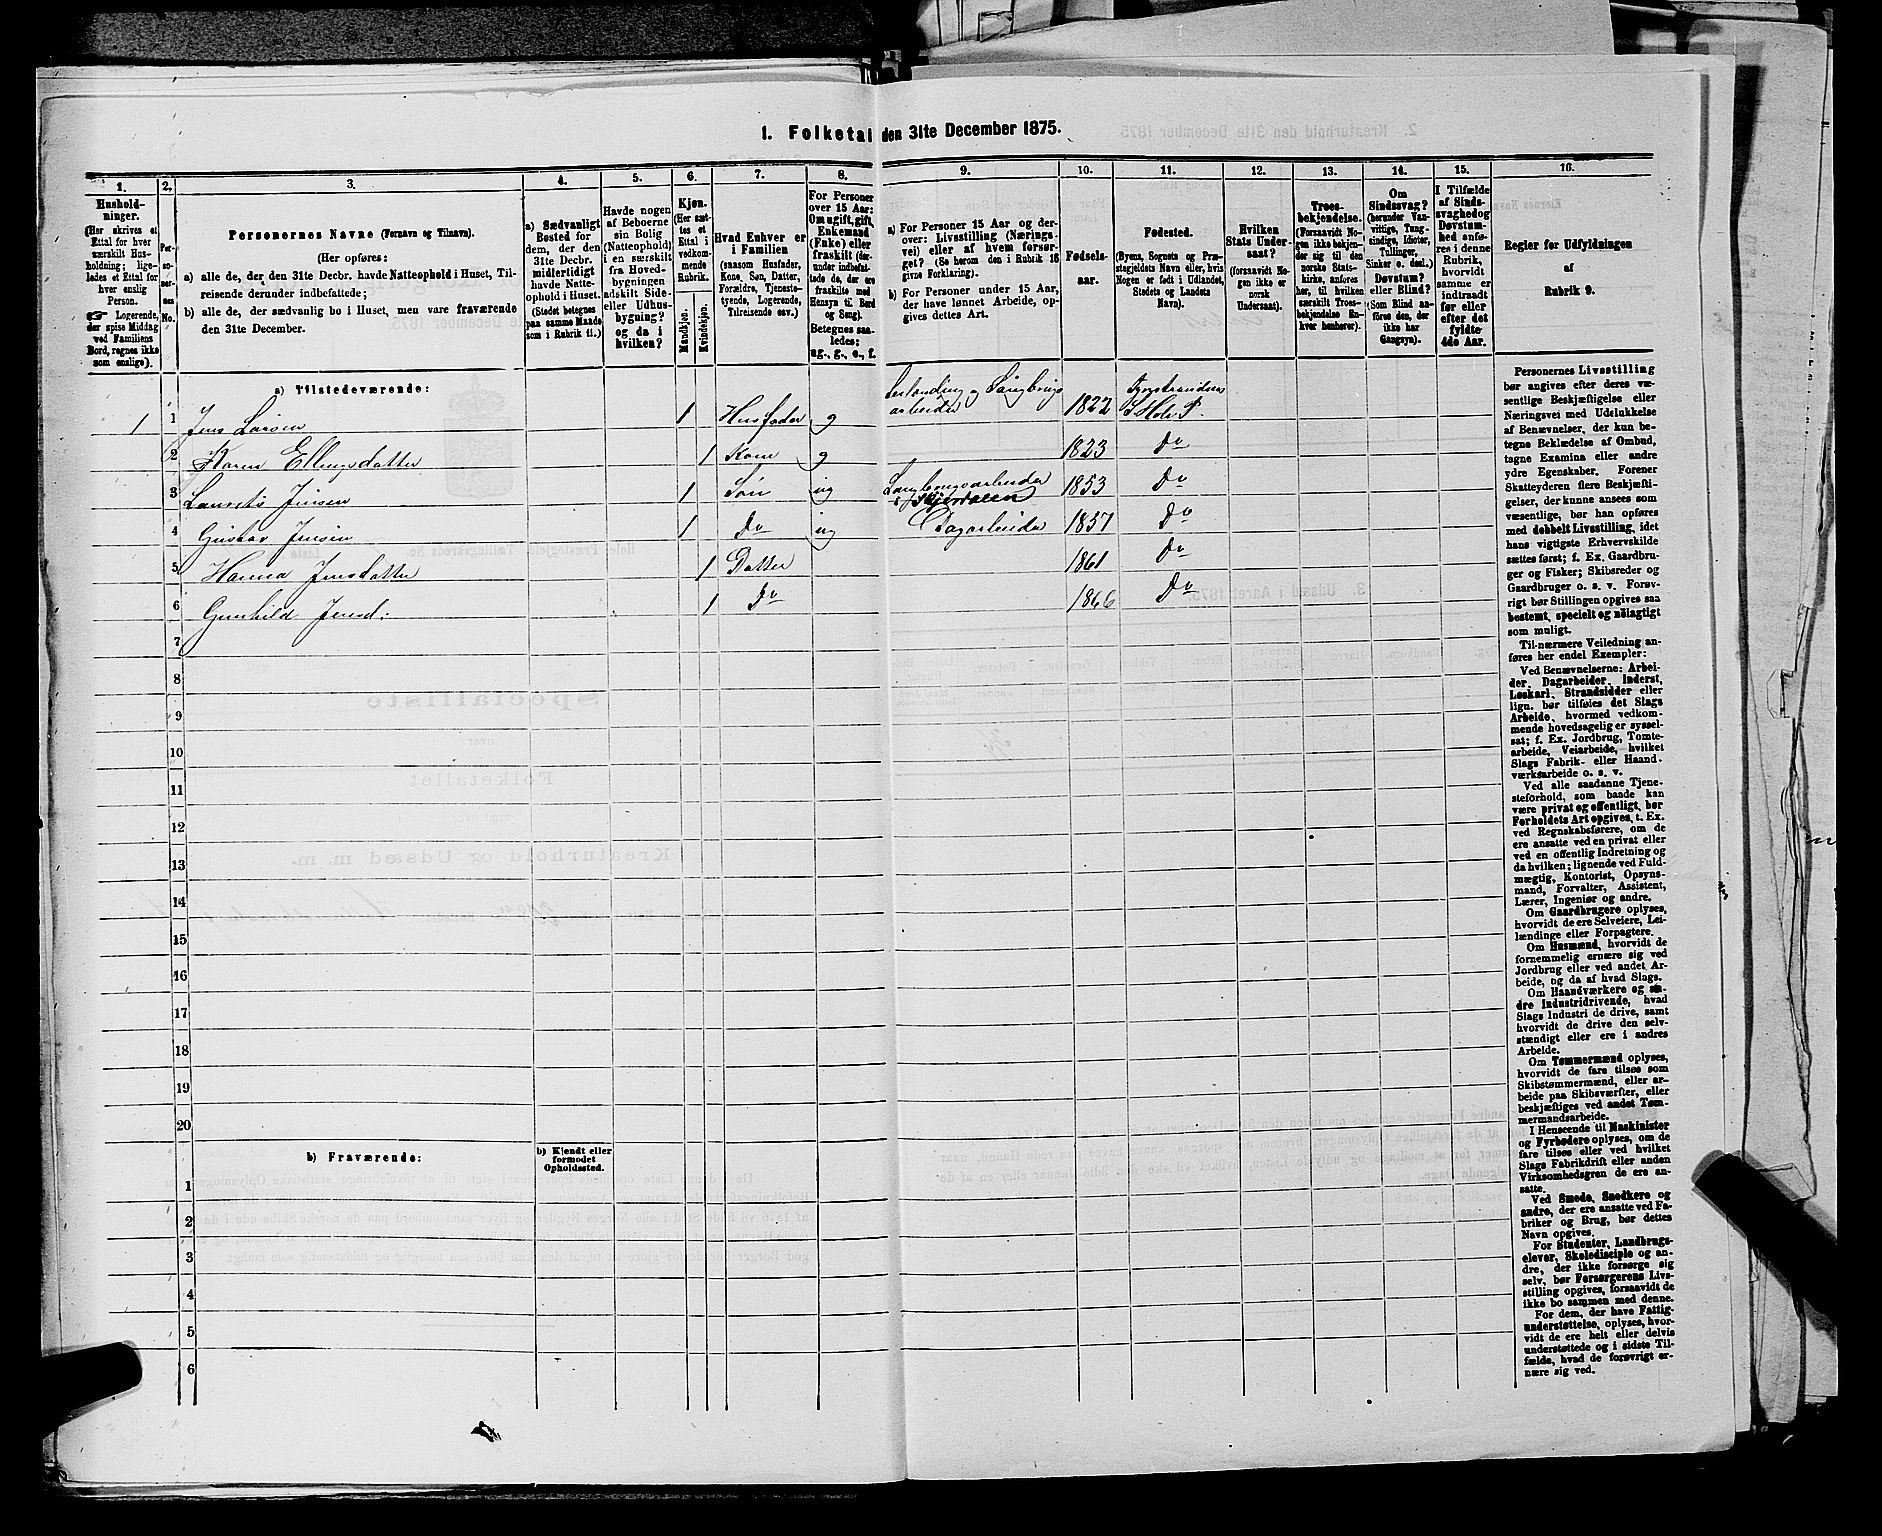 1. Folketal den 31te December 1875.
1.
Hushold-
ninger.
(Her skrives et
Ettal for hver
særskilt Hus-
holdning; lige-
ledes et Ettal for
hver enslig
Person.
☞ Logerende,
der spise Middag
ved Familiens
Bord, regnes ikke
som enslige).
2.
Per-
so-
ner-
nes
No.
3.
Personernes Navne (Fornavn og Tilnavn).
(Her opføres:
a) alle de, der den 31te Decbr. havde Natteophold i Huset, Til-
reisende derunder indbefattede;
b) alle de, der sædvanlig bo i Huset, men vare fraværende
den 31te December.
4.
a) Sædvanligt
Bosted for
dem, der den
31te Decbr.
midlertidigt
havde Natte-
ophold i Huset.
(Stedet betegnes
paa samme Maade
som i Rubrik 11.)
5.
Havde nogen
af Beboerne
sin Bolig
(Natteophold)
i en særskilt
fra Hoved-
bygningen
adskilt Side-
eller Udhus-
bygning?
og da i
hvilken?
6.
Kjøn.
(Her sæt-
tes et
Ettal i
vedkom-
mende
Rubrik.
Mandkjøn.
Kvindekjøn.
7.
Hvad Enhver er
i Familien
(saasom Husfader,
Kone, Søn, Datter,
Forældre, Tjeneste-
tyende, Logerende,
Tilreisende osv.)
8.
For Personer
over 15 Aar:
Om ugift, gift,
Enkemand
(Enke) eller
fraskilt (der-
under indbefat-
tede de, der ere
fraskilte med
Hensyn til Bord
og Seng).
Betegnes saa-
ledes:
ug., g., e., f.
9.
a) For Personer 15 Aar og der-
over: Livsstilling (Nærings-
vei) eller af hvem forsør-
get? (Se herom den i Rubrik 16
givne Forklaring).
b) For Personer under 15 Aar,
der have lønnet Arbeide, op-
gives dettes Art.
10.
Fødsels-
aar.
11.
Fødested.
(Byens, Sognets og Præ-
stegjeldets Navn eller, hvis
Nogen er født i Udlandet,
Stedets og Landets
Navn).
12.
Hvilken
Stats Under-
saat?
(forsaavidt No-
gen ikke er
norsk
Undersaat).
13.
Troes-
bekjendelse.
(Forsaavidt No-
gen ikke bekjen-
der sig til den
norske Stats-
kirke, anføres
her, til hvilken
særskilt Troes-
bekjendelse En-
hver henhører).
14.
Om
Sindssvag?
(herunder Van-
vittige, Tung-
sindige, Idioter,
Tullinger,
Sinker o. desl.)
Døvstum?
eller Blind?
(Som Blind an-
føres den, der
ikke har
Gangsyn).
15.
I Tilfælde
af Sinds-
svaghed og
Døvstum-
hed anfø-
res i denne
Rubrik,
hvorvidt
samme er
indtraadt
før eller
efter det
fyldte
4de Aar.
16.
Regler for Udfyldningen
af
Rubrik 9.
a) Tilstedeværende:
1 1 Jens Larsen 1 Husfader g arbeider 1822 S. Hole P.
2 Karen Ellingsdatter 1 Kone g 1823 Do
3 Laurits Jensen 1 Søn ug Langbrugsarbeider 1853 Do
4 Gustav Jensen 1 Do ug Dagarbeider 1857 Do
5 Hanna Jensdatter 1 Datter 1861 Do
6 Gunhild Jensd. 1 Do 1866 Do
7
8
9
10
11
12
13
14
15
16
17
18
19
20
b) Fraværende:
b) Kjendt eller
formodet
Opholdssted.
1
2
3
4
5
6
Personernes Livsstilling
bør angives efter deres væ-
sentlige Beskjæftigelse eller
Næringsvei med Udelukkelse
af Benævnelser, der kun be-
tegne Beklædelse af Ombud,
tagne Examina eller andre
ydre Egenskaber. Forener
Skatteyderen flere Beskjæfti-
gelser, der kunne ansees som
væsentlige, bør han opføres
med dobbelt Livsstilling, idet
hans vigtigste Erhvervskilde
sættes først; f. Ex. Gaardbru-
ger og Fisker; Skibsreder og
Gaardbruger o. s. v. Forøv-
rigt bør Stillingen opgives saa
bestemt, specielt og nøiagtigt
som muligt.
Til nærmere Veiledning an-
føres her endel Exempler:
Ved Benævnelserne: Arbei-
der, Dagarbeider, Inderst,
Løskarl, Strandsidder eller
lign. bør tilføies det Slags
Arbeide, hvormed vedkom-
mende hovedsagelig er syssel-
sat; f. Ex. Jordbrug, Tomte-
arbeide, Veiarbeide, hvilket
Slags Fabrik- eller Haand-
værksarbeide o. s. v.
Ved alle saadanne Tjene-
steforhold, som baade kan
være privat og offentligt, bør
Forholdets Art opgives, t. Ex.
ved Regnskabsførere, om de
ere ansatte ved en privat eller
ved en offentlig Indretning og
da hvilken; lignende ved Fuld-
mægtig, Kontorist, Opsyns-
mand, Forvalter, Assistent,
Lærer, Ingeniør og andre.
Om Gaardbrugere oplyses,
hvorvidt de ere Selveiere, Lei-
lændinge eller Forpagtere.
Om Husmænd, hvorvidt de
fornemmelig ernære sig ved
Jordbrug eller ved andet Ar-
beide, og da af hvad Slags.
Om Haandværkere og an-
dre Industridrivende, hvad
Slags Industri de drive, samt
hvorvidt de drive den selv-
stændigt eller ere i andres
Arbeide.
Om Tømmermænd oplyses,
hvorvidt de fare tilsøs som
Skibstømmermænd, eller ar-
beide paa Skibsværfter, eller
beskjæftiges ved andet Tøm-
mermandsarbeide.
I Henseende til Maskinister
og Fyrbødere oplyses, om de
fare tilsøs eller ved hvilket
Slags Fabrikdrift eller anden
Virksomhedsgren de ere an-
satte.
Ved Smede, Snedkere og
andre, der ere ansatte ved Fa-
briker og Brug, bør dettes
Navn opgives.
For Studenter, Landbrugs-
elever, Skoledisciple og an-
dre, der ikke forsørge sig
selv, bør Forsørgerens Livs-
stilling opgives, forsaavidt de
ikke bo sammen med denne.
For dem, der have Fattig-
understøttelse, oplyses, hvor-
vidt de ere helt eller delvis
understøttede og i sidste Til-
fælde, hvad de forøvrigt er-
nære sig ved.